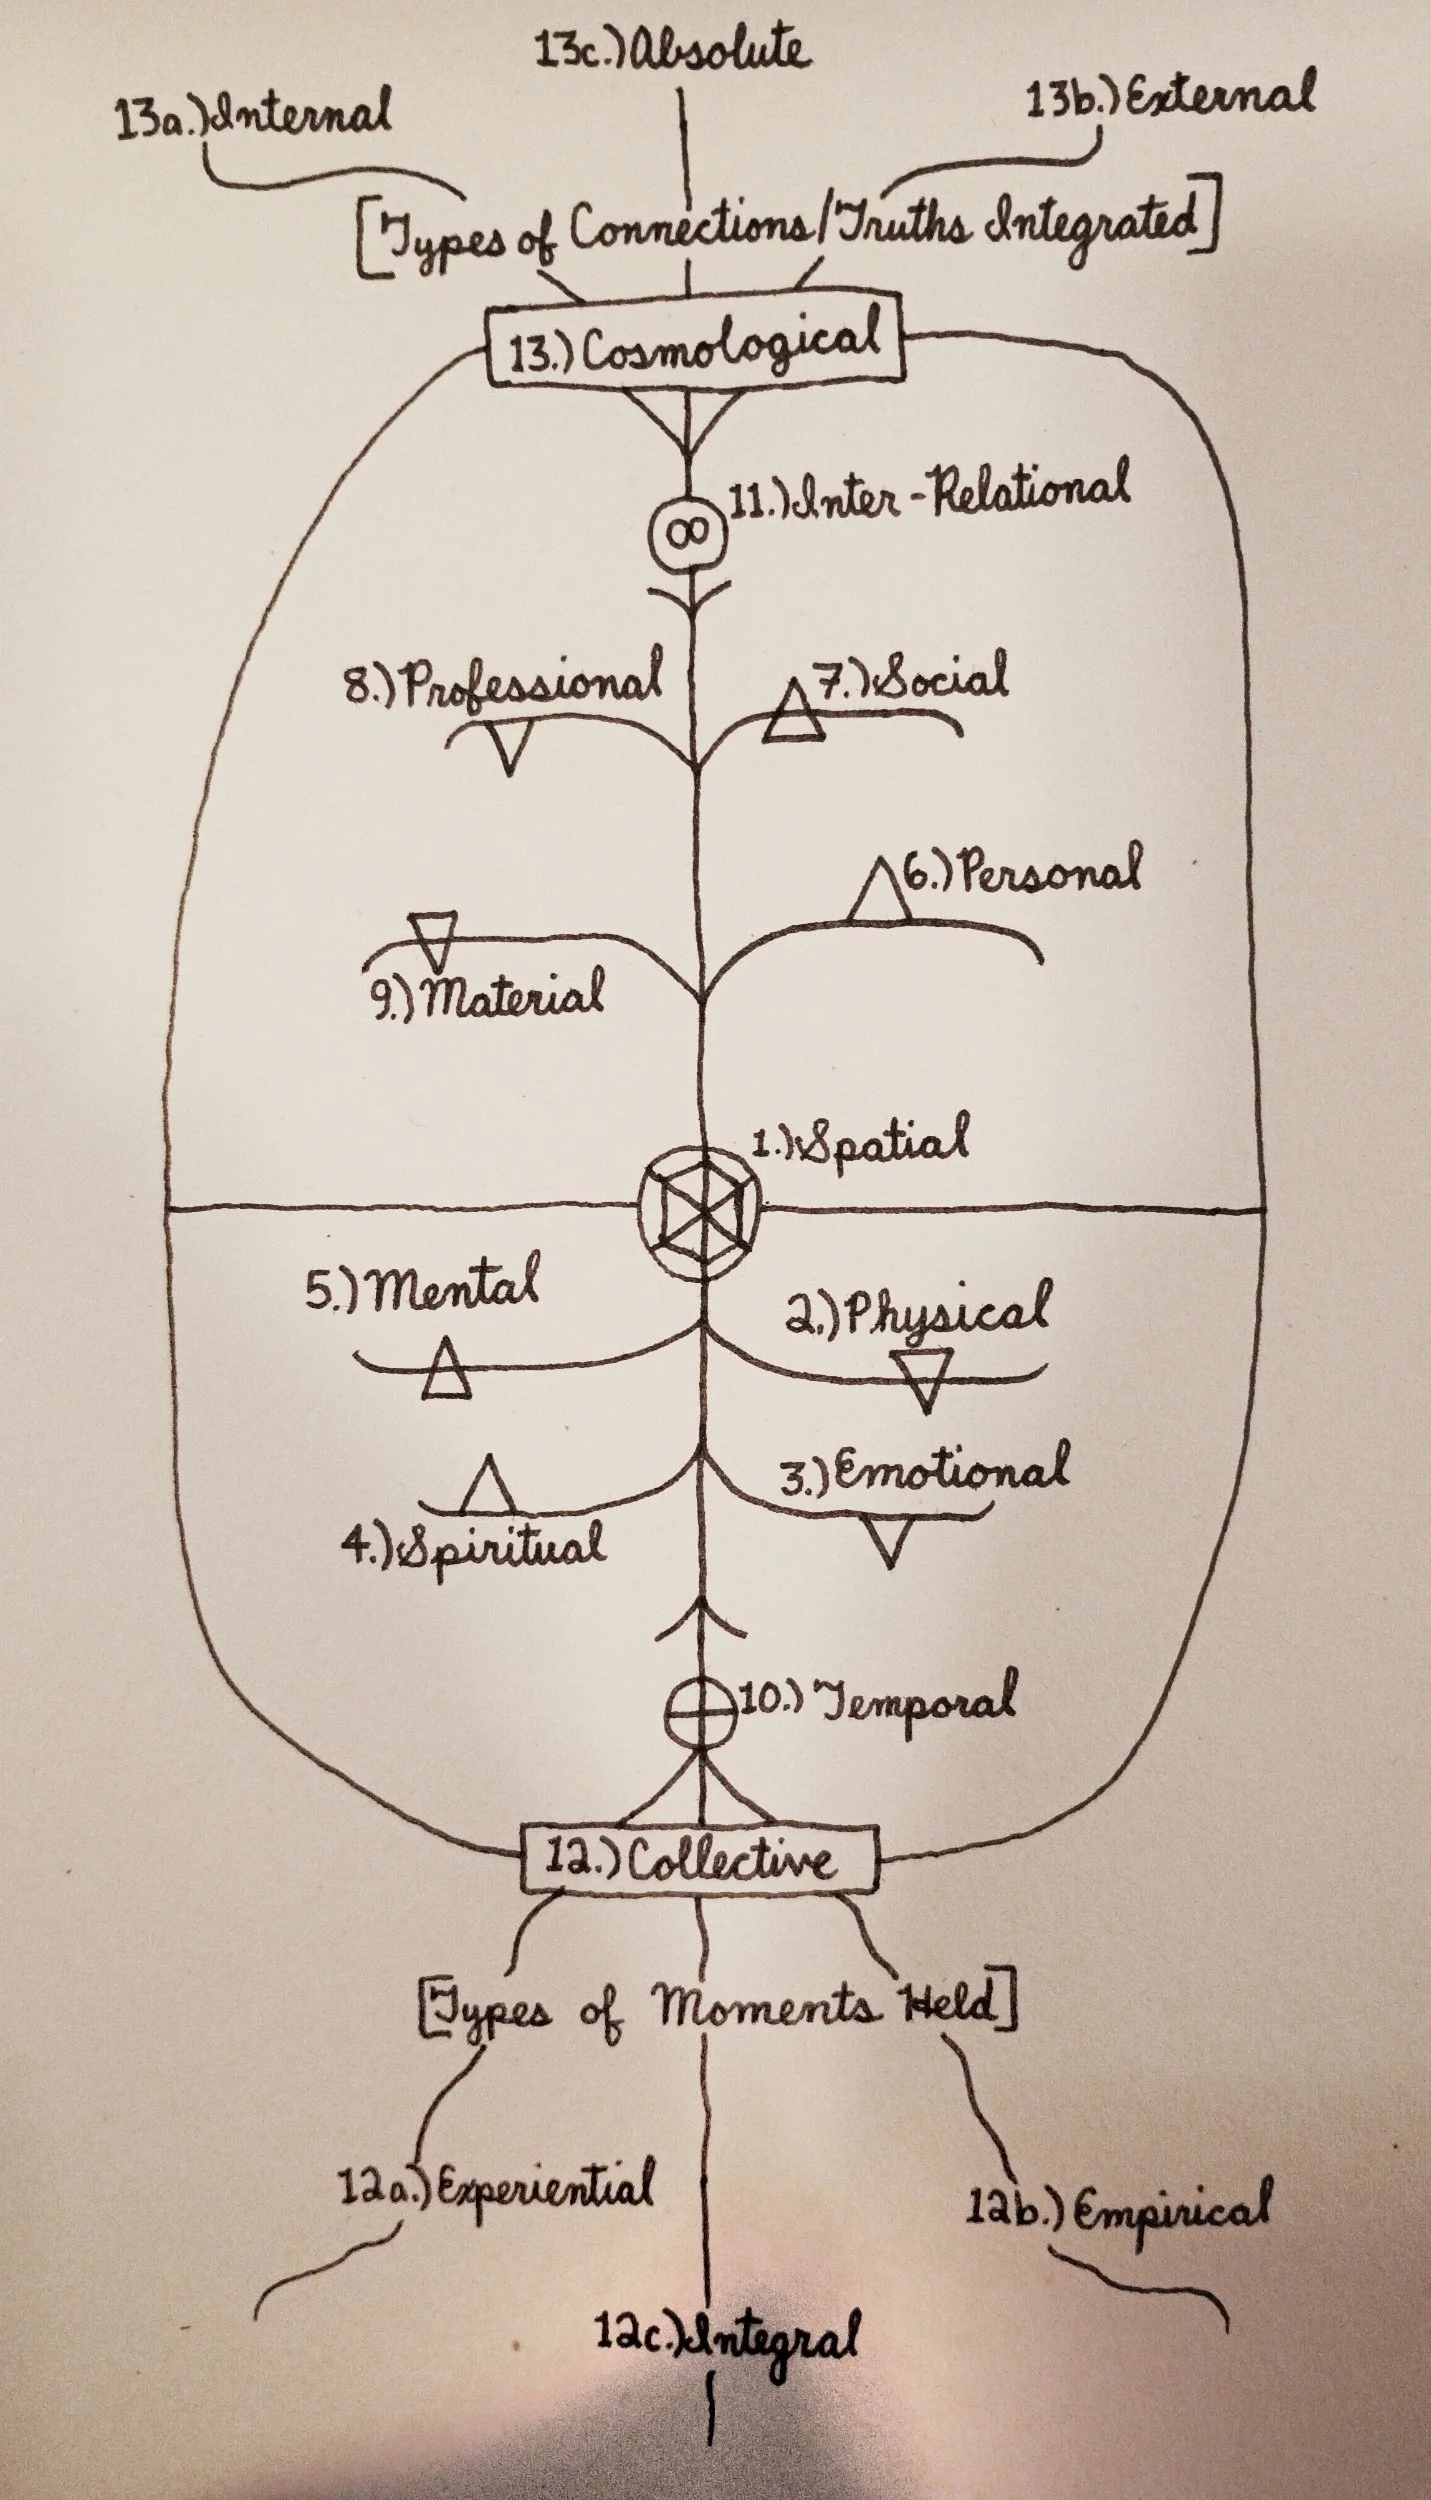 13c.)Absolute
13a.)Internal
13b.)External
[Types of Connections/Truths Integrated]
13.)Cosmological
∞
11.)Inter-Relational
8.)Professional
7.)Social
6.)Personal
9.)Material
1.)Spatial
5.)Mental
2.)Physical
3.)Emotional
4.)Spiritual
10.)Temporal
12.)Collective
[Types of Moments Held]
12a.)Experiential
12b.)Empirical
12c.)Integral